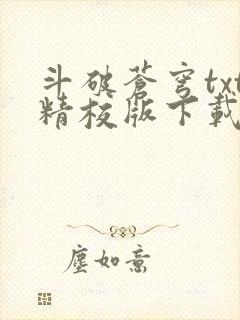 斗破蒼穹txt
精校版下載
塵如意